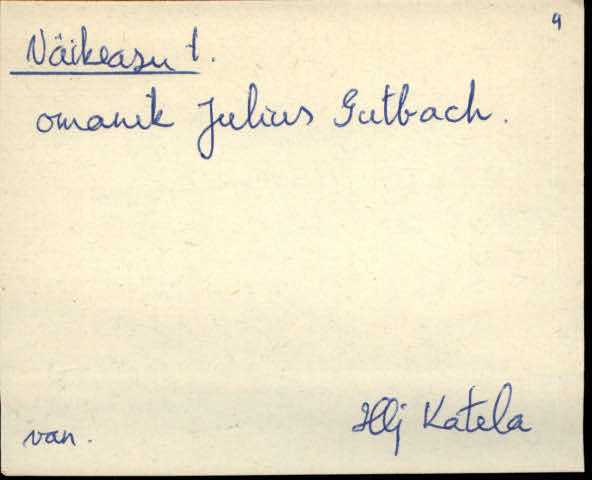 9
Näikeasu t.
omanik Julius Gutbach.
van.
Hlj Katela